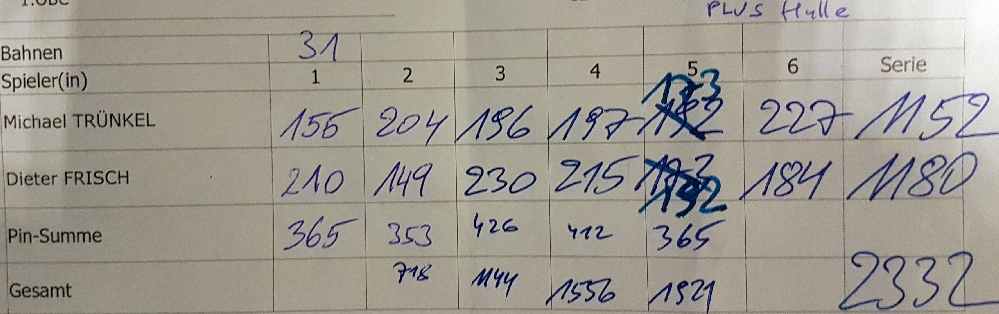 PLUS
Bahnen 31
Spieler(in) 1 2 3 4 5 6 Serie
173
Michael TRÜNKEL 155 204 196 197 192 227 1152
Dieter FRISCH 210 149 230 215 173 184 1180
192
Pin-Summe 365 353 426 412 365
Gesamt 718 1144 1556 1921 2332